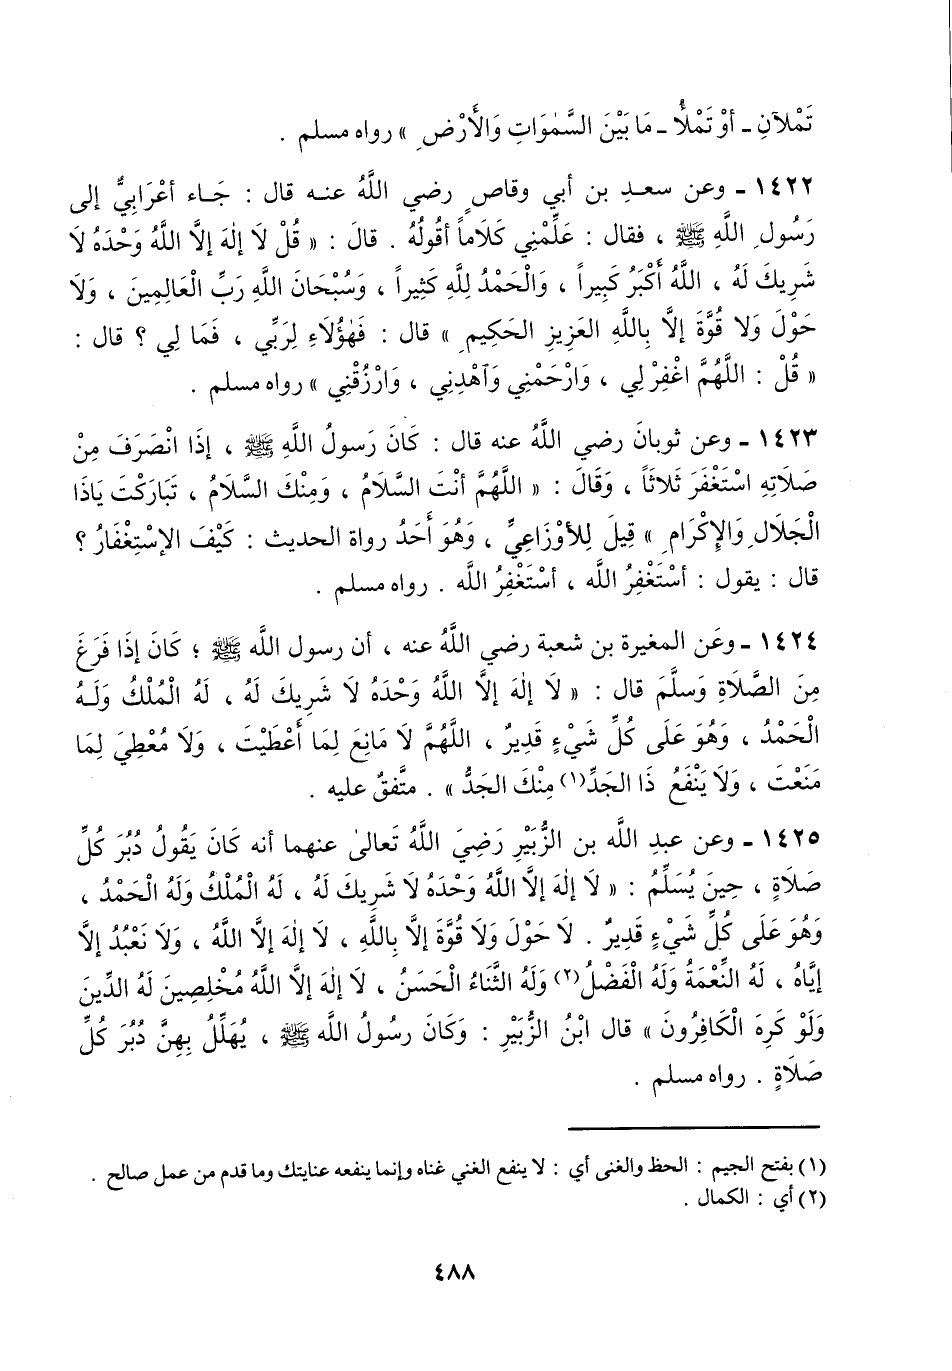 تَمْلآنِ ـ أوْ تَمْلأُ ـ مَا بَيْنَ السَّمٰوَاتِ وَالْأَرْضِ » رواه مسلم .
١٤٢٢ ـ وعن سعدِ بن أبي وقاصٍ رضي اللَّهُ عنه قال : جَاء أعْرَابِيٌّ إلى
رَسُولِ اللَّهِ ﷺ ، فقال : عَلِّمْنِي كَلَاماً أقُولُهُ . قالَ : « قُلْ لَا إلٰهَ إلَّا اللَّهُ وَحْدَهُ لَا
شَرِيكَ لَهُ ، اللَّهُ أكْبَرُ كَبِيراً ، وَالْحَمْدُ لِلَّهِ كَثِيراً ، وَسُبْحَانَ اللَّهِ رَبِّ الْعَالِمِينَ ، وَلَا
حَوْلَ وَلا قُوَّةَ إلَّا بِاللَّهِ العَزِيزِ الحَكِيمِ » قال : فَهٰؤُلَاءِ لِرَبِّي ، فَمَا لِي ؟ قال :
« قُلْ : اللَّهُمَّ اغْفِرْ لِي ، وَارْحَمْنِي وَٱهْدِنِي ، وَارْزُقْنِي » رواه مسلم .
١٤٢٣ ـ وعن ثوبانَ رضي اللَّهُ عنه قال : كَانَ رَسولُ اللَّهِ ﷺ ، إذَا انْصَرَفَ مِنْ
صَلَاتِهِ اسْتَغْفَرَ ثَلاثَاً ، وَقَالَ : « اللَّهُمَّ أنْتَ السَّلَامُ ، وَمِنْكَ السَّلَامُ ، تَبَارَكْتَ يَاذَا
الْجَلَالِ وَالإِكْرَامِ » قِيلَ لِلأوْزَاعِيِّ ، وَهُوَ أَحَدُ رواة الحديث : كَيْفَ الإسْتِغْفَارُ ؟
قال : يقول : أسْتَغْفِرُ اللَّه ، أسْتَغْفِرُ اللَّه . رواه مسلم .
١٤٢٤ ـ وعَن المغيرة بن شعبة رضي اللَّهُ عنه ، أن رسول اللَّه ﷺ ؛ كَانَ إذَا فَرَغَ
مِنَ الصَّلَاةِ وَسلَّمَ قال : « لَا إلٰهَ إلَّا اللَّهُ وَحْدَهُ لَا شَرِيكَ لَهُ ، لَهُ الْمُلْكُ وَلَهُ
الْحَمْدُ ، وَهُوَ عَلَى كُلِّ شَيْءٍ قَدِيرٌ ، اللَّهُمَّ لَا مَانِعَ لِمَا أَعْطَيْتَ ، وَلَا مُعْطِيَ لِمَا
مَنَعْتَ ، وَلَا يَنْفَعُ ذَا الجَدِّ(١) مِنْكَ الجَدُّ » . متَّفقٌ عليه .
١٤٢٥ ـ وعن عبدِ اللَّه بن الزُّبَيْرِ رَضِيَ اللَّهُ تَعالىٰ عنهما أنه كَانَ يَقُولُ دُبُرَ كُلِّ
صَلَاةٍ ، حِينَ يُسَلِّمُ : « لَا إلٰهَ إلَّا اللَّهُ وَحْدَهُ لَا شَرِيكَ لَهُ ، لَهُ الْمُلْكُ وَلَهُ الْحَمْدُ ،
وَهُوَ عَلَى كُلِّ شَيْءٍ قَدِيرٌ . لَا حَوْلَ وَلَا قُوَّةَ إلَّا بِاللَّهِ ، لَا إلٰهَ إلَّا اللَّهُ ، وَلَا نَعْبُدُ إلَّا
إيَّاهُ ، لَهُ النِّعْمَةُ وَلَهُ الْفَضْلُ(٢) وَلَهُ الثَّنَاءُ الْحَسَنُ ، لَا إلٰهَ إلَّا اللَّهُ مُخْلِصِينَ لَهُ الدِّينَ
وَلَوْ كَرِهَ الْكَافِرُونَ » قال ابْنُ الزُّبَيْرِ : وَكَانَ رسولُ اللَّه ﷺ ، يُهَلِّلُ بِهِنَّ دُبُرَ كُلِّ
صَلَاةٍ . رواه مسلم .
(١) بفتح الجيم : الحظ والغنى أي : لا ينفع الغني غناه وإنما ينفعه عنايتك وما قدم من عمل صالح .
(٢) أي : الكمال .
٤٨٨